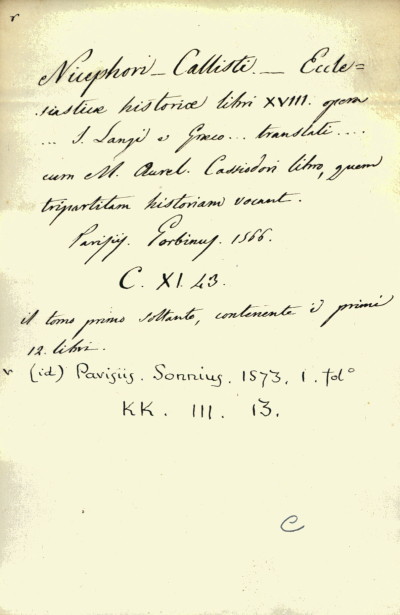 r
Nicephori - Callisti - Eccle=
siasticæ historiæ libri XVIII. opera
... I. Langi e Græco... translati....
cum M. Aurel. Cassiodori libro, quem
tripartitam historiam vocant.
Parisijs. Corbinus. 1566.
C. XI. 43.
il tomo primo soltanto, contenente i primi
12. libri.
v (id) Parisiis. Sonnius. 1573. 1. fdº
KK. III. 13.
C